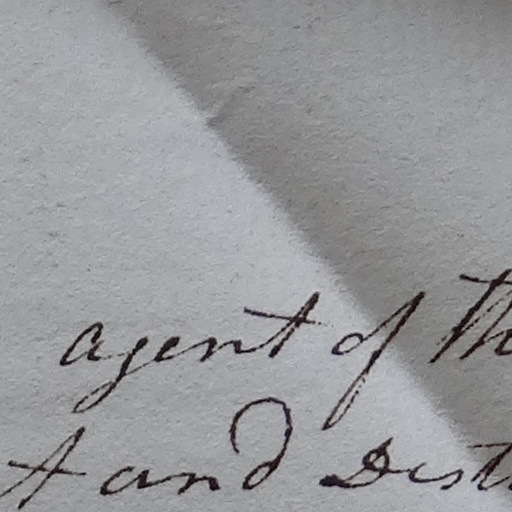 agent of th
t and Dist